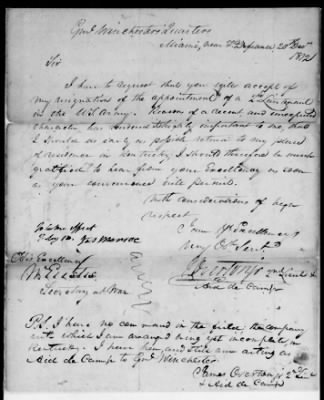 Genl Winchesters Quarters
Miami, near Ft Defiance 20th Decr
1812
Sir
I have to request that you will accept of
my resignation of the appointment of a 2d Lieutenant
in the U.S. Army. Reasons of a recent and unexpected
character has rendered it highly important to me that
I should as early as possible return to my place
of residence in Kentucky. I should therefore be much
gratified to hear from your Excellency as soon
as your convenience will permit.
With considerations of high
respect
I am Yr Excellencys
To take effect
Jas Monroe
very Obt Servt
His Excellency
Wm Eustis
Secretary at War
J Overton Jr 2nd Lieut &
Aid de Camp
P.S. I have no command in the field, the company
with which I am arranged being yet incomplete in
Kentucky. I have been and still am acting as
Aid de Camp to Genl Winchester
James Overton Jr 2d Lt
& Aid de Camp